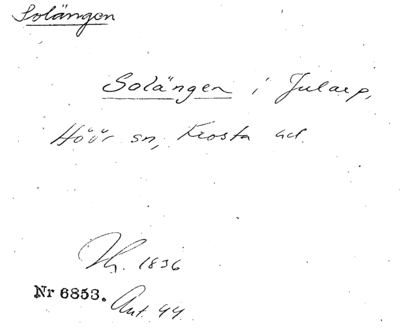 Solängen
Solängen i Jularp,
Höör sn, Frosta hd.
Th. 1836
Nr 6853. Ant. 44.